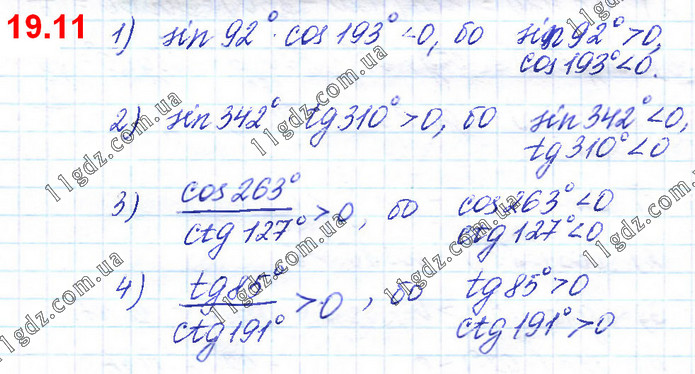 19.11
1) sin 92° · cos 193° < 0, бо sin 92° > 0,
cos 193° < 0.
2) sin 342° tg 310° > 0, бо sin 342° < 0,
tg 310° < 0
3) cos 263° / ctg 127° > 0, бо cos 263° < 0
ctg 127° < 0
4) tg 85° / ctg 191° > 0, бо tg 85° > 0
ctg 191° > 0
11gdz.com.ua
11gdz.com.ua
11gdz.com.ua
11gdz.com.ua
11gdz.com.ua
11gdz.com.ua